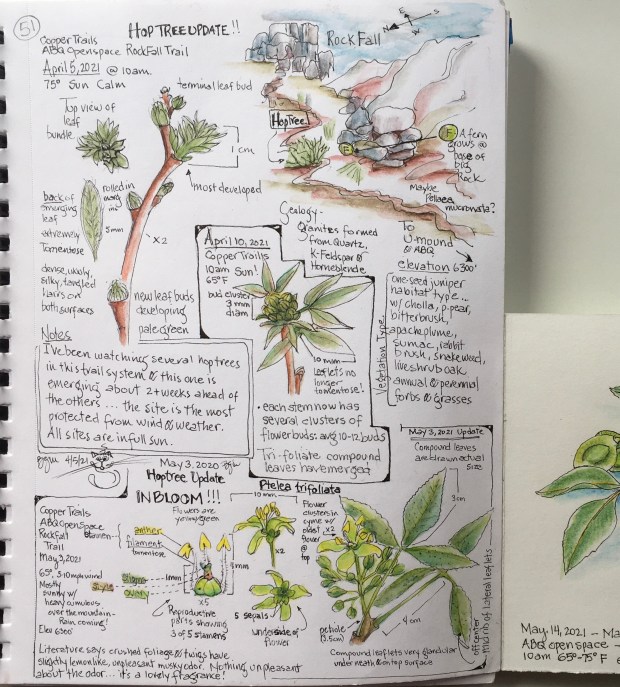 51
HOP TREE UPDATE!!
Copper Trails
ABQ Open space Rock Fall Trail
April 5, 2021 @ 10am.
75° Sun Calm
terminal leaf bud
Top view of
leaf
bundle
1 cm
most developed
back of
emerging
leaf
extremely
Tomentose
rolled in
margins
5mm
x2
dense, wooly,
silky, tangled
hairs on
both surfaces
new leaf buds
developing
pale green
E
N
S
W
Rock Fall
HopTree
F
F
A fern
grows @
base of
big
Rock
Maybe
Pellaea
mucronata?
Geology-
Granites formed
from Quartz,
K-Feldspar &
Horneblende
To
U-mound
@ ABQ
elevation 6300'
Vegetation Type
one-seed juniper
habitat type...
w/ cholla, p-pear,
bitterbrush,
apache plume,
sumac, rabbit
brush, snakeweed,
live shrub oak
annual & perennial
forbs & grasses
April 10, 2021
Copper Trails
10am Sun!
65°F
bud cluster
3 mm
diam
10 mm
leaflets no
longer
tomentose!
• each stem now has
several clusters of
flowerbuds: avg 10-12 buds
Tri-foliate compound
leaves have emerged
Notes
I've been watching several hoptrees
in this trail system & this one is
emerging about 2+ weeks ahead of
the others... the site is the most
protected from wind & weather.
All sites are in full sun.
4/5/21
May 3, 2020
Hoptree Update
IN BLOOM!!!
Ptelea trifoliata
May 3, 2021 Update
Compound leaves
are drawn actual
size
3cm
Copper Trails
ABQ Open Space
Rockfall
Trail
May 3, 2021
65°, 5-10mph wind
Mostly
sunny w/
heavy cumulous
over the mountain-
Rain coming!
Elev 6300'
Flowers are
yellow/green
stamen
anther
filament
tomentose
stigma
style
ovary
1mm
3mm
x5
Reproductive
parts showing
3 of 5 stamens
10 mm
x2
5 sepals
underside of
flower
Flower
clusters in
cyme w/
oldest
flower
@
top
x2
petiole
(3.5cm)
4 cm
off center
midrib of lateral leaflets
Compound leaflets very glandular
underneath & on top surface
Literature says crushed foliage & twigs have
slightly lemonlike, unpleasant musky odor. Nothing unpleasant
about the odor... it's a lovely fragrance!
May 14, 2021 - Ma
ABQ open space -
10am 65°-75°F